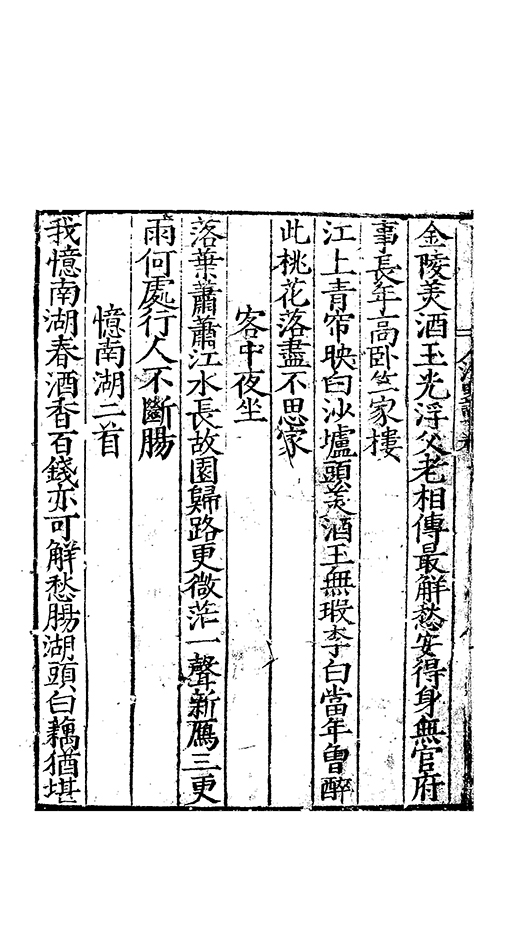 金陵美酒玉光浮父老相傳最解愁安得身無官府
事長年高臥竺家樓
江上青帘映白沙壚頭美酒玉無瑕李白當年曾醉
此桃花落盡不思家
客中夜坐
落葉蕭蕭江水長故園歸路更微茫一聲新鴈三更
雨何處行人不斷腸
憶南湖二首
我憶南湖春酒香百錢亦可解愁腸湖頭白藕猶堪